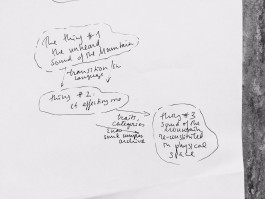 The thing # 1
the unheard
sound of the Mountain
transition to
language
thing # 2
it effecting me
traits,
categories
into
some
archive
thing # 3
sound of the
mountain
re-constituted
in physical
space